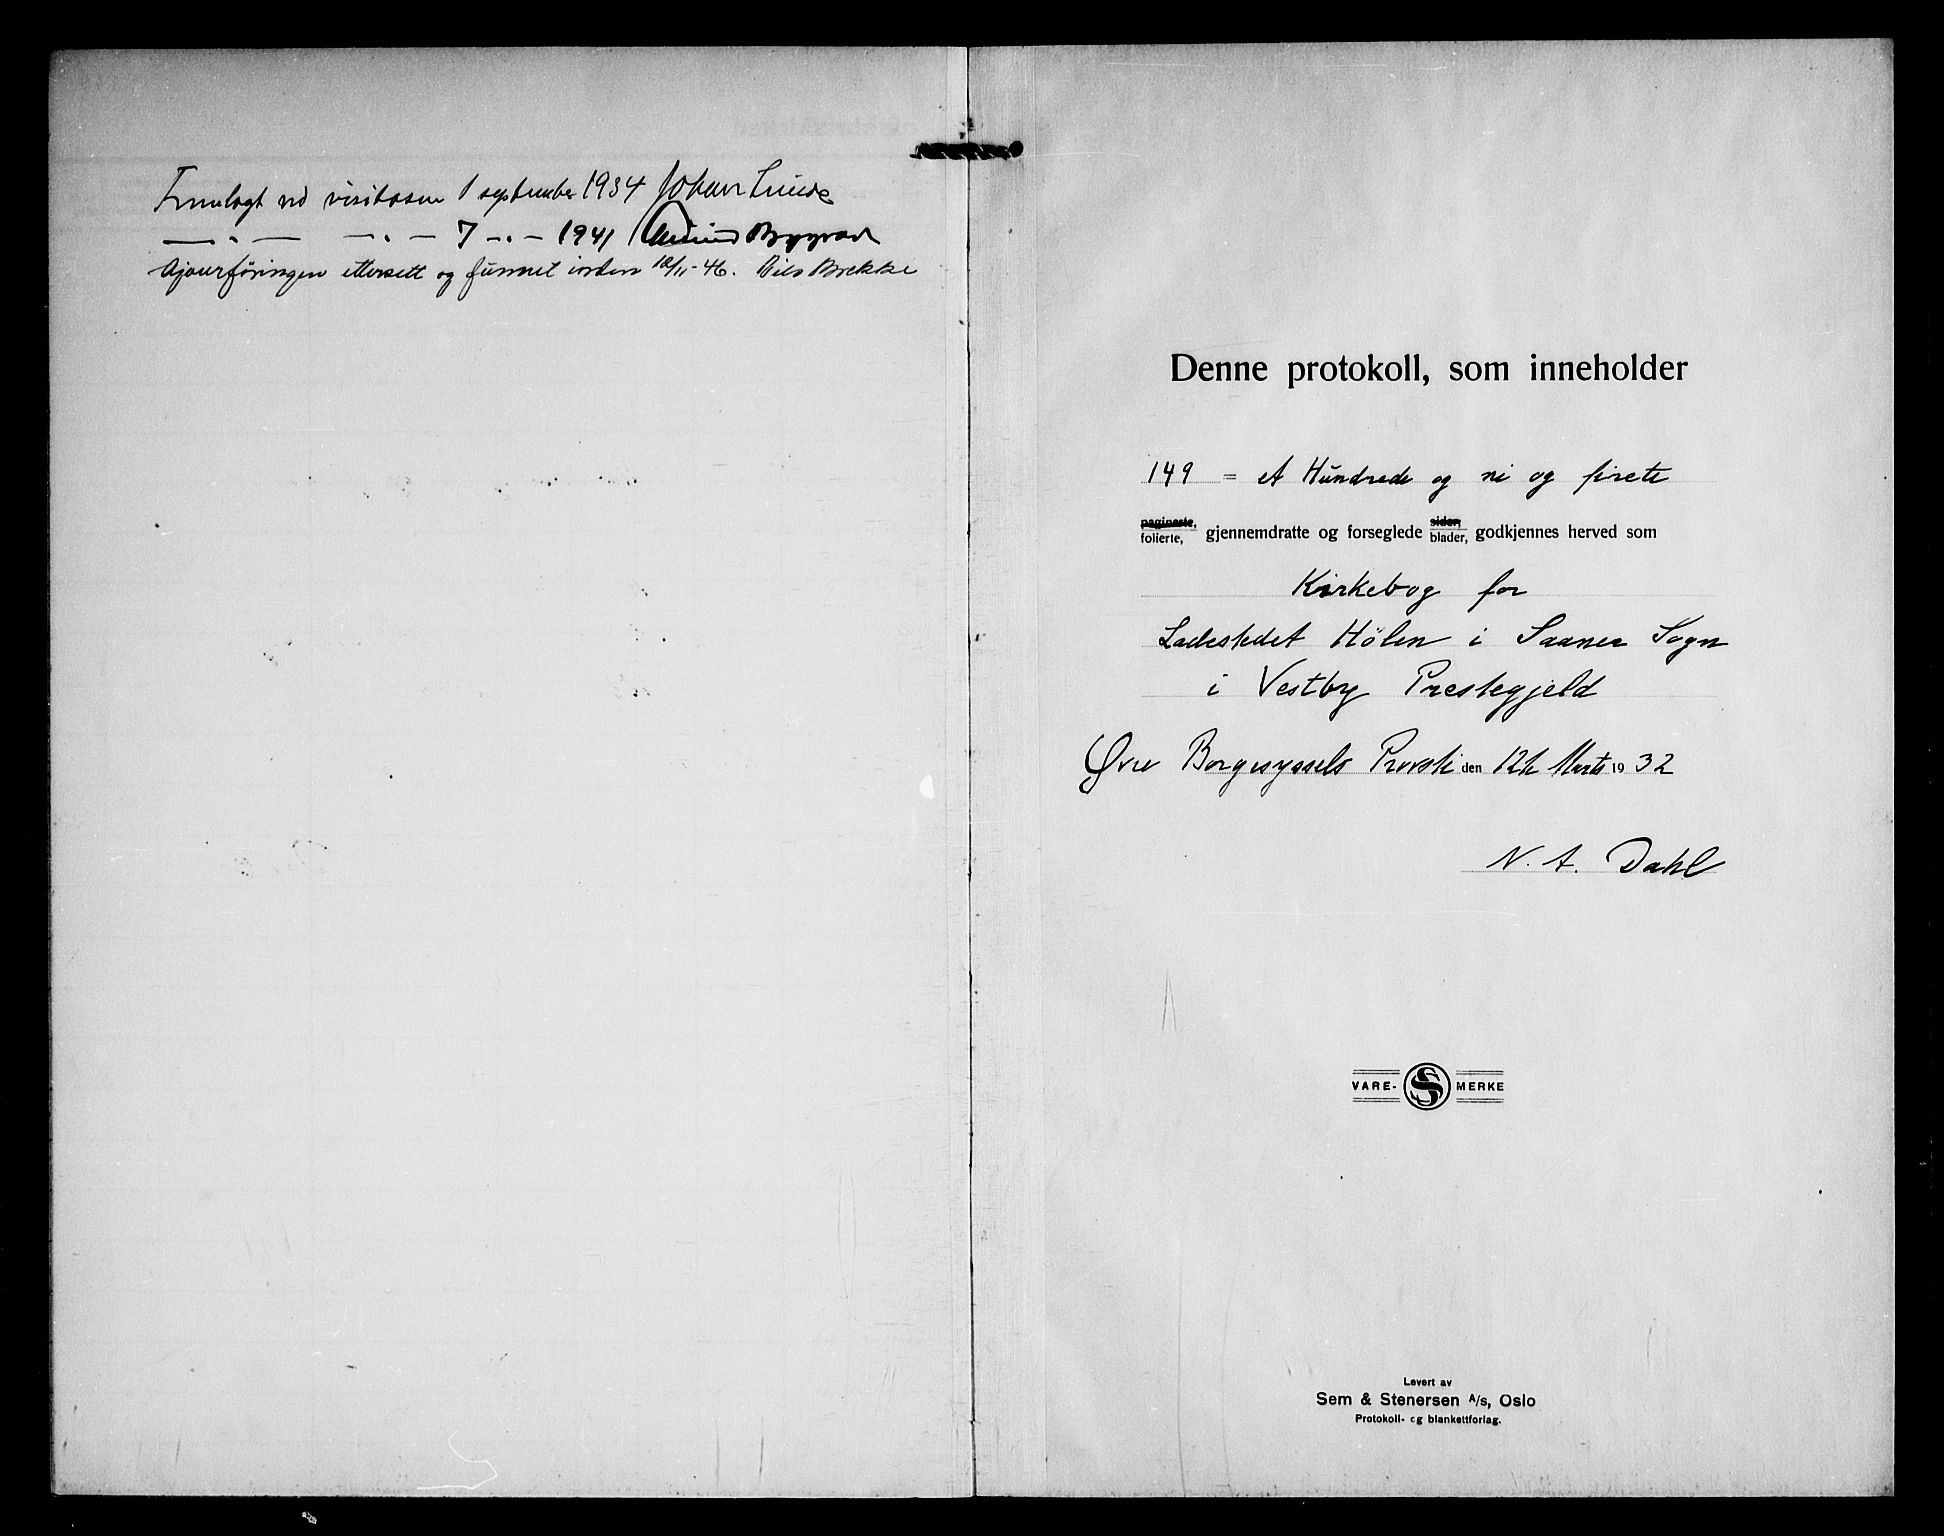 Fremlagt ved visitasen 1 september 1934 Johan Lunde
— " — — " — 7 — " — 1941 Bygstad
Ajourføringen ettersett og funnet iorden 10/11-46. Nils Brekke
Denne protokoll, som inneholder
149 = et Hundrede og ni og fireti
paginerte, folierte, gjennemdratte og forseglede sider, blader, godkjennes herved som
Kirkebog for
Ladestedet Hölen i Saaner Sogn
i Vestby Prestegjeld
Øvre Borgesyssels Provsti den 12te Marts 1932
N. A. Dahl
VARE- S MERKE
Levert av
Sem & Stenersen A/s, Oslo
Protokoll- og blankettforlag.